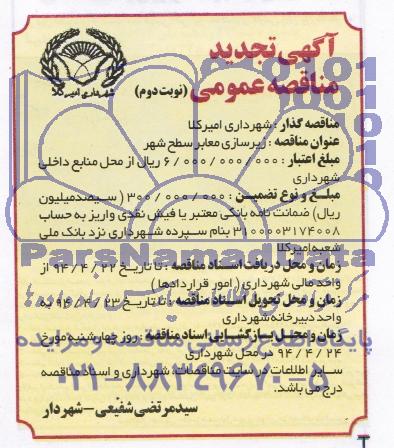 آگهی تجدید
مناقصه عمومی (نوبت دوم)
شهرداری امیرکلا
مناقصه گذار : شهرداری امیرکلا
عنوان مناقصه : زیرسازی معابر سطح شهر
مبلغ اعتبار : ۶/۰۰۰/۰۰۰/۰۰۰ ریال از محل منابع داخلی
شهرداری
مبلغ و نوع تضمین : ۳۰۰/۰۰۰/۰۰۰ ( سیصدمیلیون
ریال) ضمانت نامه بانکی معتبر یا فیش نقدی واریز به حساب
۳۱۰۰۰۰۳۱۷۴۰۰۸ بنام سپرده شهرداری نزد بانک ملی
شعبه امیرکلا
زمان و محل دریافت اسناد مناقصه : تا تاریخ ۹۴/۴/۲۲ از
واحد مالی شهرداری ( امور قراردادها )
زمان و محل تحویل اسناد مناقصه : تا تاریخ ۹۴/۴/۲۳ به
واحد دبیرخانه شهرداری
زمان و محل بازگشایی اسناد مناقصه : روز چهارشنبه مورخ
۹۴/۴/۲۴ در محل شهرداری
سایر اطلاعات در سایت مناقصات، شهرداری و اسناد مناقصه
درج می باشد.
سیدمرتضی شفیعی - شهردار
ParsNamadData
پایگاه اطلاع رسانی مناقصه و مزایده
۰۲۱-۸۸۳۴۹۶۷۰-۵